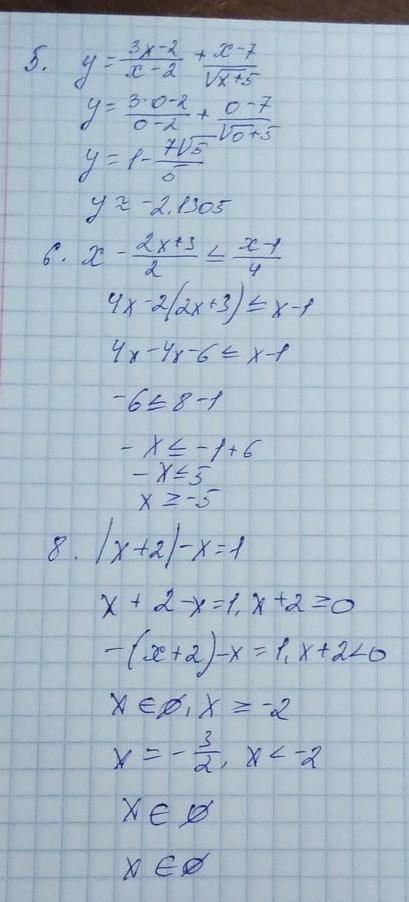 5. y = (3x-2)/(x-2) + (x-7)/√(x+5)
y = (3·0-2)/(0-2) + (0-7)/√(0+5)
y = 1 - 7√5/5
y ≈ -2.1305
6. x - (2x+3)/2 ≤ (x-1)/4
4x-2(2x+3) ≤ x-1
4x-4x-6 ≤ x-1
-6 ≤ 8-1
-x ≤ -1+6
-x ≤ 5
x ≥ -5
8. |x+2|-x=1
x+2-x=1, x+2≥0
-(x+2)-x=1, x+2<0
x∈∅, x ≥ -2
x = -3/2, x < -2
x∈∅
x∈∅